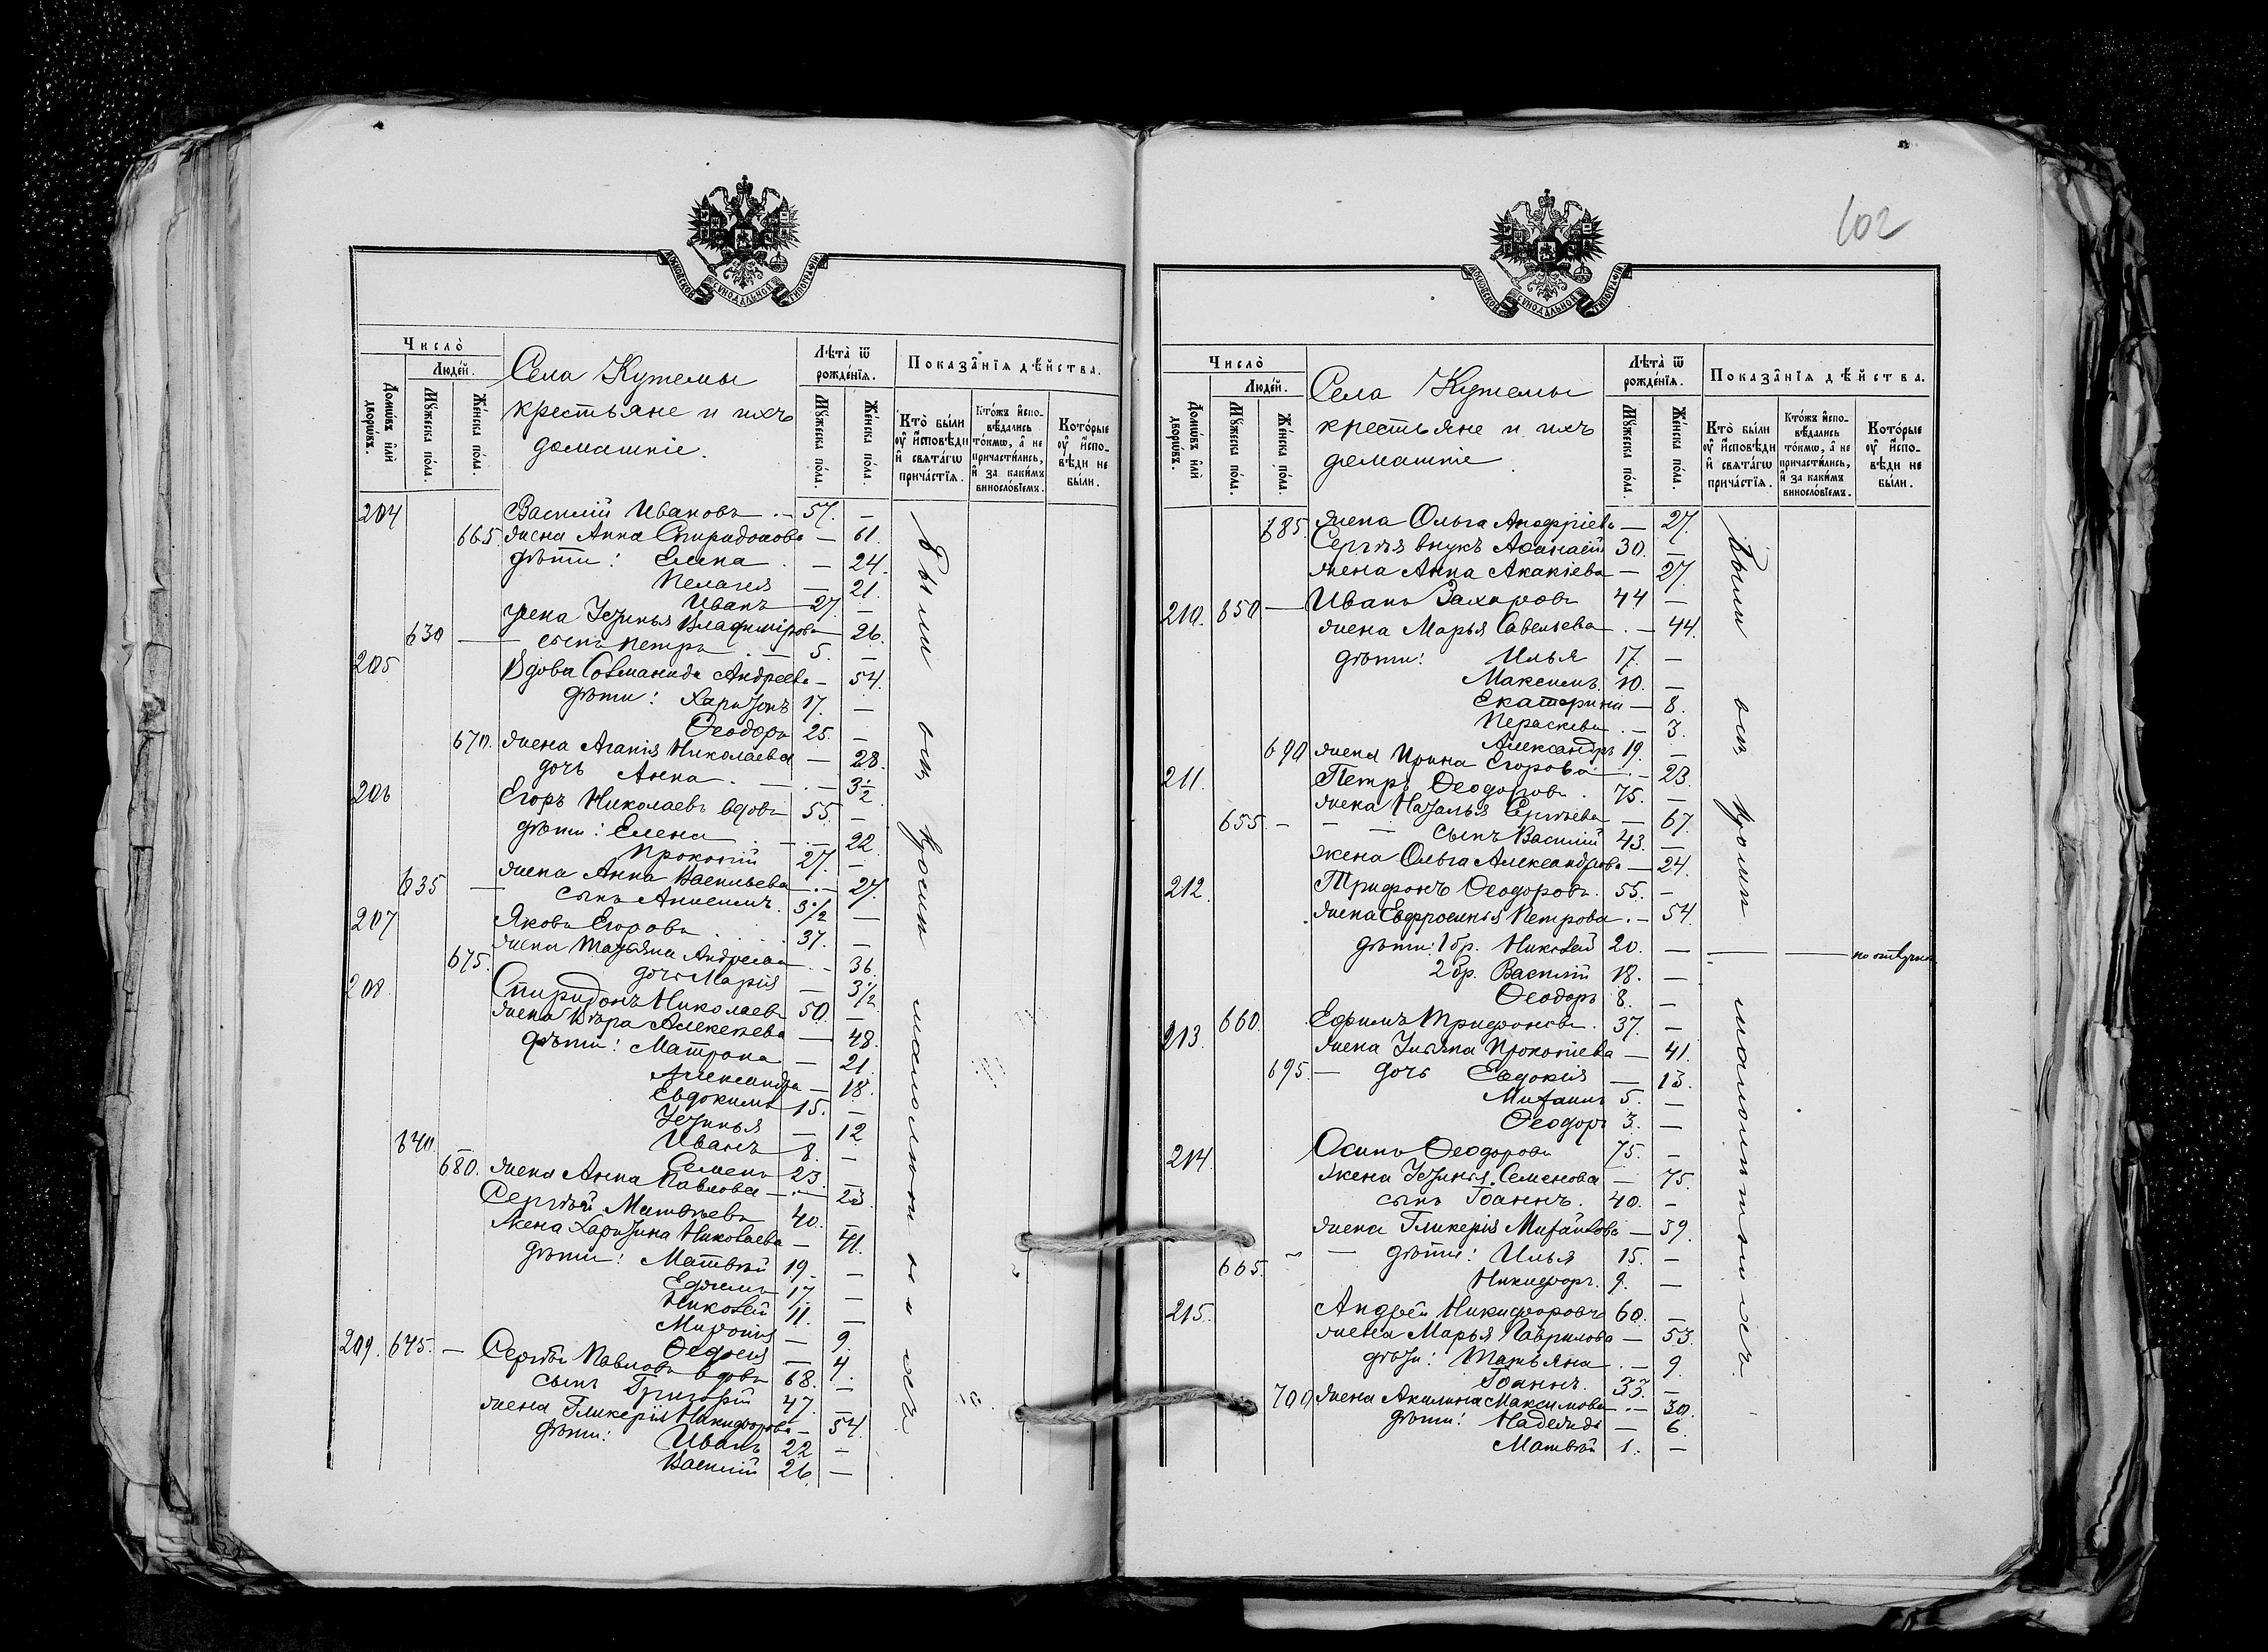 МОСКОВСКОЙ СѴНОДАЛЬНОЙ ТИПОГРАФІИ
Число̀
Людей.
Домѡвъ илѝ дворѡвъ.
Мꙋжеска по́ла.
Же́нска по́ла.
Села Кутемы
крестьяне и ихъ
домашніе.
Лѣта̀ ѿ рожде́нїѧ.
Мꙋжеска по́ла.
Же́нска по́ла.
Показа̑нїѧ дѣ́йства.
Кто̀ были ᲂу҆ и҆сповѣди и҆ свѧта́гѡ прича́стїѧ.
Кто́жъ и҆спо-вѣдались то́кмѡ, а҆ не причасти́лись, и҆ за каки́мъ винослóвїемъ.
Кото́рые ᲂу҆ и҆спо-вѣди не бы́ли.
204 Василій Ивановъ . — 57. —
665. жена Анна Спиридонова — 61.
дѣти: Елена . — 24.
Пелагея — 21.
Иванъ 27. —
жена Устинья Владимірова 26.
630 — сынъ Петръ . — 5. —
205 Вдова Андреева — 54.
дѣти: Харитонъ 17. —
Ѳеодоръ 25. —
670. жена Агапія Николаева — 28.
дочь Анна . — . — 3 1/2
206 Егоръ Николаевъ вдовъ 55. —
дѣти: Елена . — . — 22
Прокопій 27. —
жена Анна Васильева . — 27.
635 — сынъ Анисимъ . 3 1/2 —
207 Яковъ Егоровъ . . . 37. —
жена Татьяна Андреева . — 36.
675. дочь Марія — 3 1/2
208 Спиридонъ Николаевъ 50. —
жена Вѣра Алексѣева — 48.
дѣти: Матрона — 21.
Александра — 18.
Евдокимъ 15. —
Устинья — 12
640. Иванъ 8. —
Семенъ 23. —
680. жена Анна Павлова — . — 23.
Сергѣй Матвѣевъ 40. —
жена Харитина Николаева — 41.
дѣти: Матвѣй 19. —
Ефимъ 17 —
Николай 11. —
— 9.
Ѳедосія — 4.
209. 645. — Сергѣй Павловъ вдовъ 68. —
сынъ Григорій 47. —
жена Гликерія Никифорова — 54.
дѣти: Иванъ 22 —
Василій 26. —
Были
102
МОСКОВСКОЙ СѴНОДАЛЬНОЙ ТИПОГРАФІИ
Число̀
Людей.
Домѡвъ илѝ дворѡвъ.
Мꙋжеска по́ла.
Же́нска по́ла.
Села Кутемы
крестьяне и ихъ
домашніе
Лѣта̀ ѿ рожде́нїѧ.
Мꙋжеска по́ла.
Же́нска по́ла.
Показа̑нїѧ дѣ́йства.
Кто̀ были ᲂу҆ и҆сповѣди и҆ свѧта́гѡ прича́стїѧ.
Кто́жъ и҆спо-вѣдались то́кмѡ, а҆ не причасти́лись, и҆ за каки́мъ винослóвїемъ.
Кото́рые ᲂу҆ и҆спо-вѣди не бы́ли.
685. жена Ольга — 27.
Сергѣя внукъ Аѳанасій 30. —
жена Анна Акакіева — 27.
210. 650 — Иванъ Захаровъ 44 —
жена Марья Савельева . — 44.
дѣти: Илья 17. —
Максимъ. 10. —
Екатерина — 8.
Параскева . — 3.
Александръ 19. —
690 жена Ирина Егорова — . — 23.
211. Петръ Ѳеодоровъ . 75. —
жена Наталья Сергѣева — 67.
655. — — — сынъ Василій 43. —
жена Ольга Александрова — 24.
212. Трифонъ Ѳеодоровъ. 55. —
жена Евфросинья Петрова . — 54
дѣти: 1 бр. Николай 20. — — — по отлучкѣ
2 бр. Василій 18. —
Ѳеодоръ 8. —
213. 660. Ефимъ Трифоновъ . 37. —
жена Ульяна Прокопіева — 41.
695. — дочь Евдокія — 13.
Михаилъ 5. —
Ѳеодоръ 3. —
214. Осипъ Ѳеодоровъ 75. —
жена Устинія Семенова — 75.
сынъ Іоаннъ. 40. —
жена Гликерія Михайлова — 39.
665. — — дѣти: Илья 15. —
Никифоръ. 9. —
215. Андрей Никифоровъ 60. —
жена Марья Гаврилова — 53.
дѣти: Татьяна . — 9.
Іоаннъ. 33. —
700 жена Акилина Максимова . — 30.
дѣти: Надежда — 6.
Матвѣй 1. —
Были